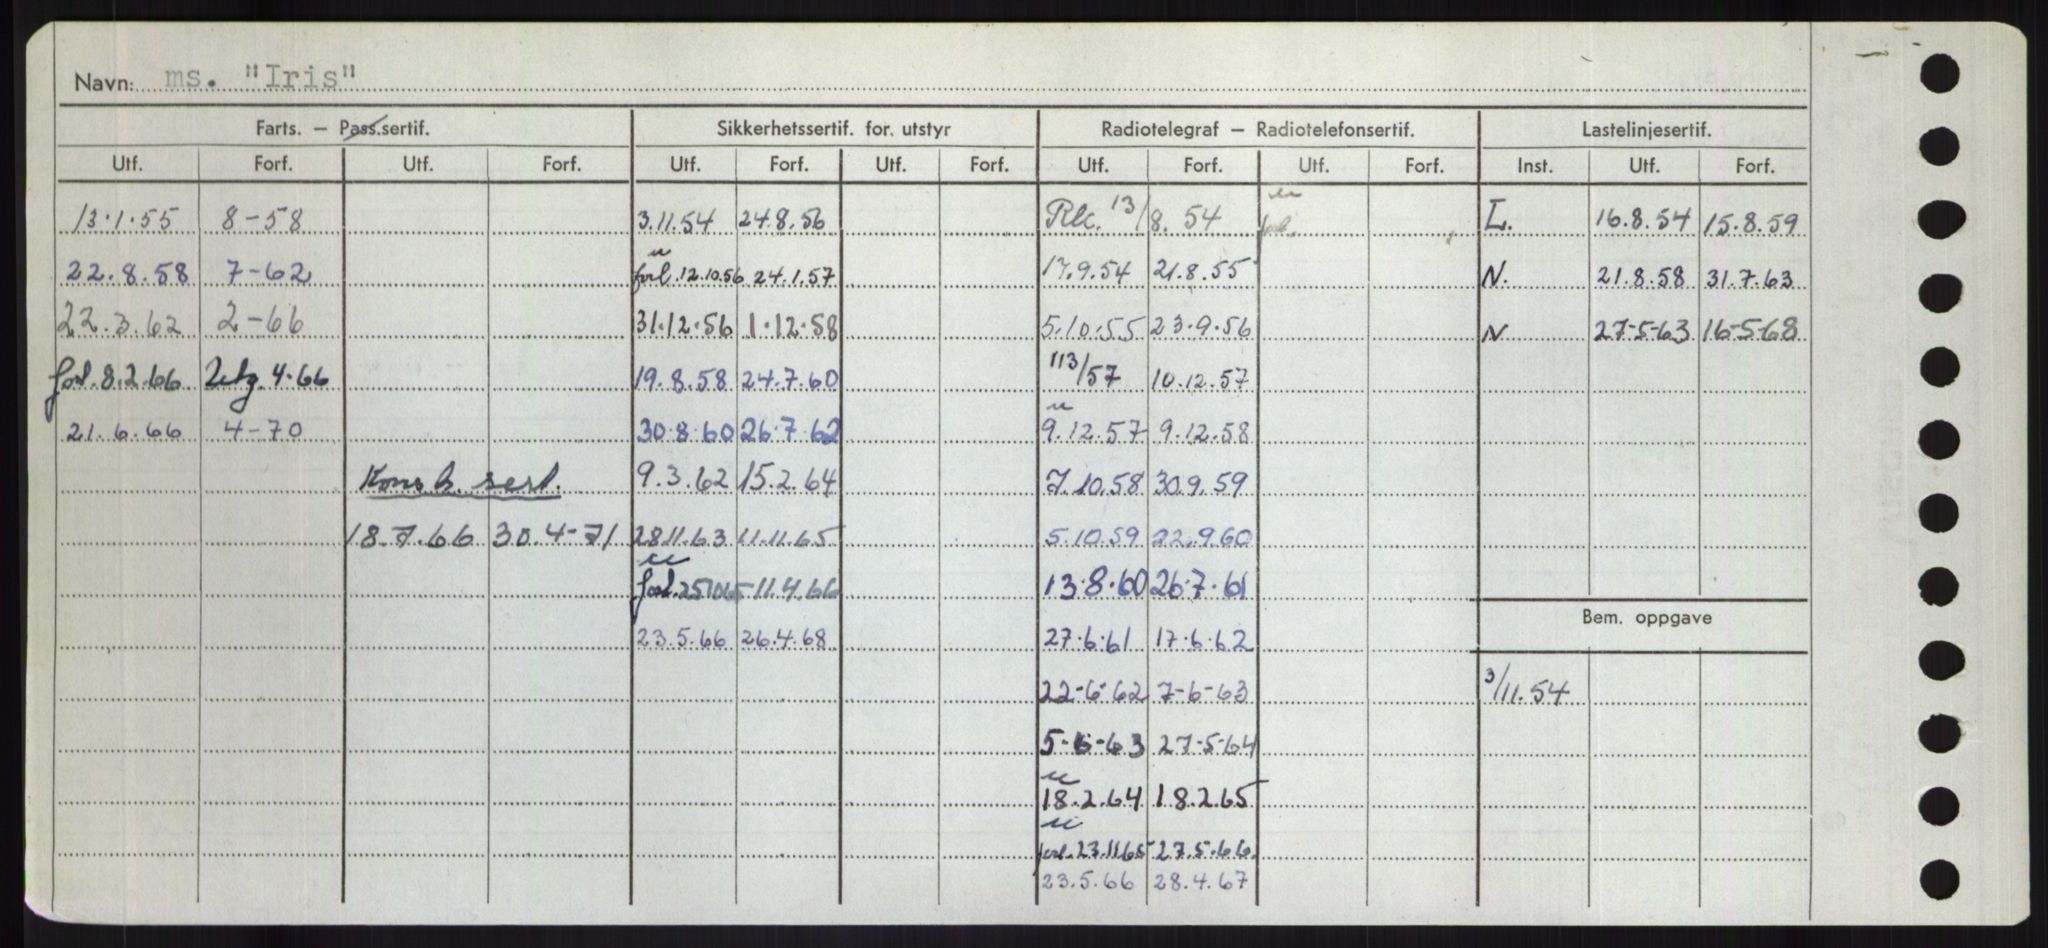 Navn: ms. "Iris"
Farts. – Pass.sertif. Sikkerhetssertif. for. utstyr Radiotelegraf – Radiotelefonsertif. Lastelinjesertif.
Utf. Forf. Utf. Forf. Utf. Forf. Utf. Forf. Utf. Forf. Utf. Forf. Inst. Utf. Forf.
13.1.55 8-58 3.11.54 24.8.56 13/8.54 L. 16.8.54 15.8.59
22.8.58 7-62 forl. 12.10.56 24.1.57 17.9.54 21.8.55 N. 21.8.58 31.7.63
22.3.62 2-66 31.12.56 1.12.58 5.10.55 23.9.56 N 27-5-63 16-5-68
forl. 8.2.66 Utg. 4.66 19.8.58 24.7.60 113/57 10.12.57
21.6.66 4-70 30.8.60 26.7.62 9.12.57 9.12.58
Komb. sert. 9.3.62 15.2.64 7.10.58 30.9.59
18.7.66 30.4-71 28.11.63 11.11.65 5.10.59 22.9.60
forl. 251065 11.4.66 13.8.60 26.7.61
Bem. oppgave
23.5.66 26.4.68 27.6.61 17.6.62
22-6-62 7-6-63 3/11.54
5-6-63 27-5-64
18.2.64 18.2.65
forl. 23.11.65 27.5.66
23.5.66 28.4.67